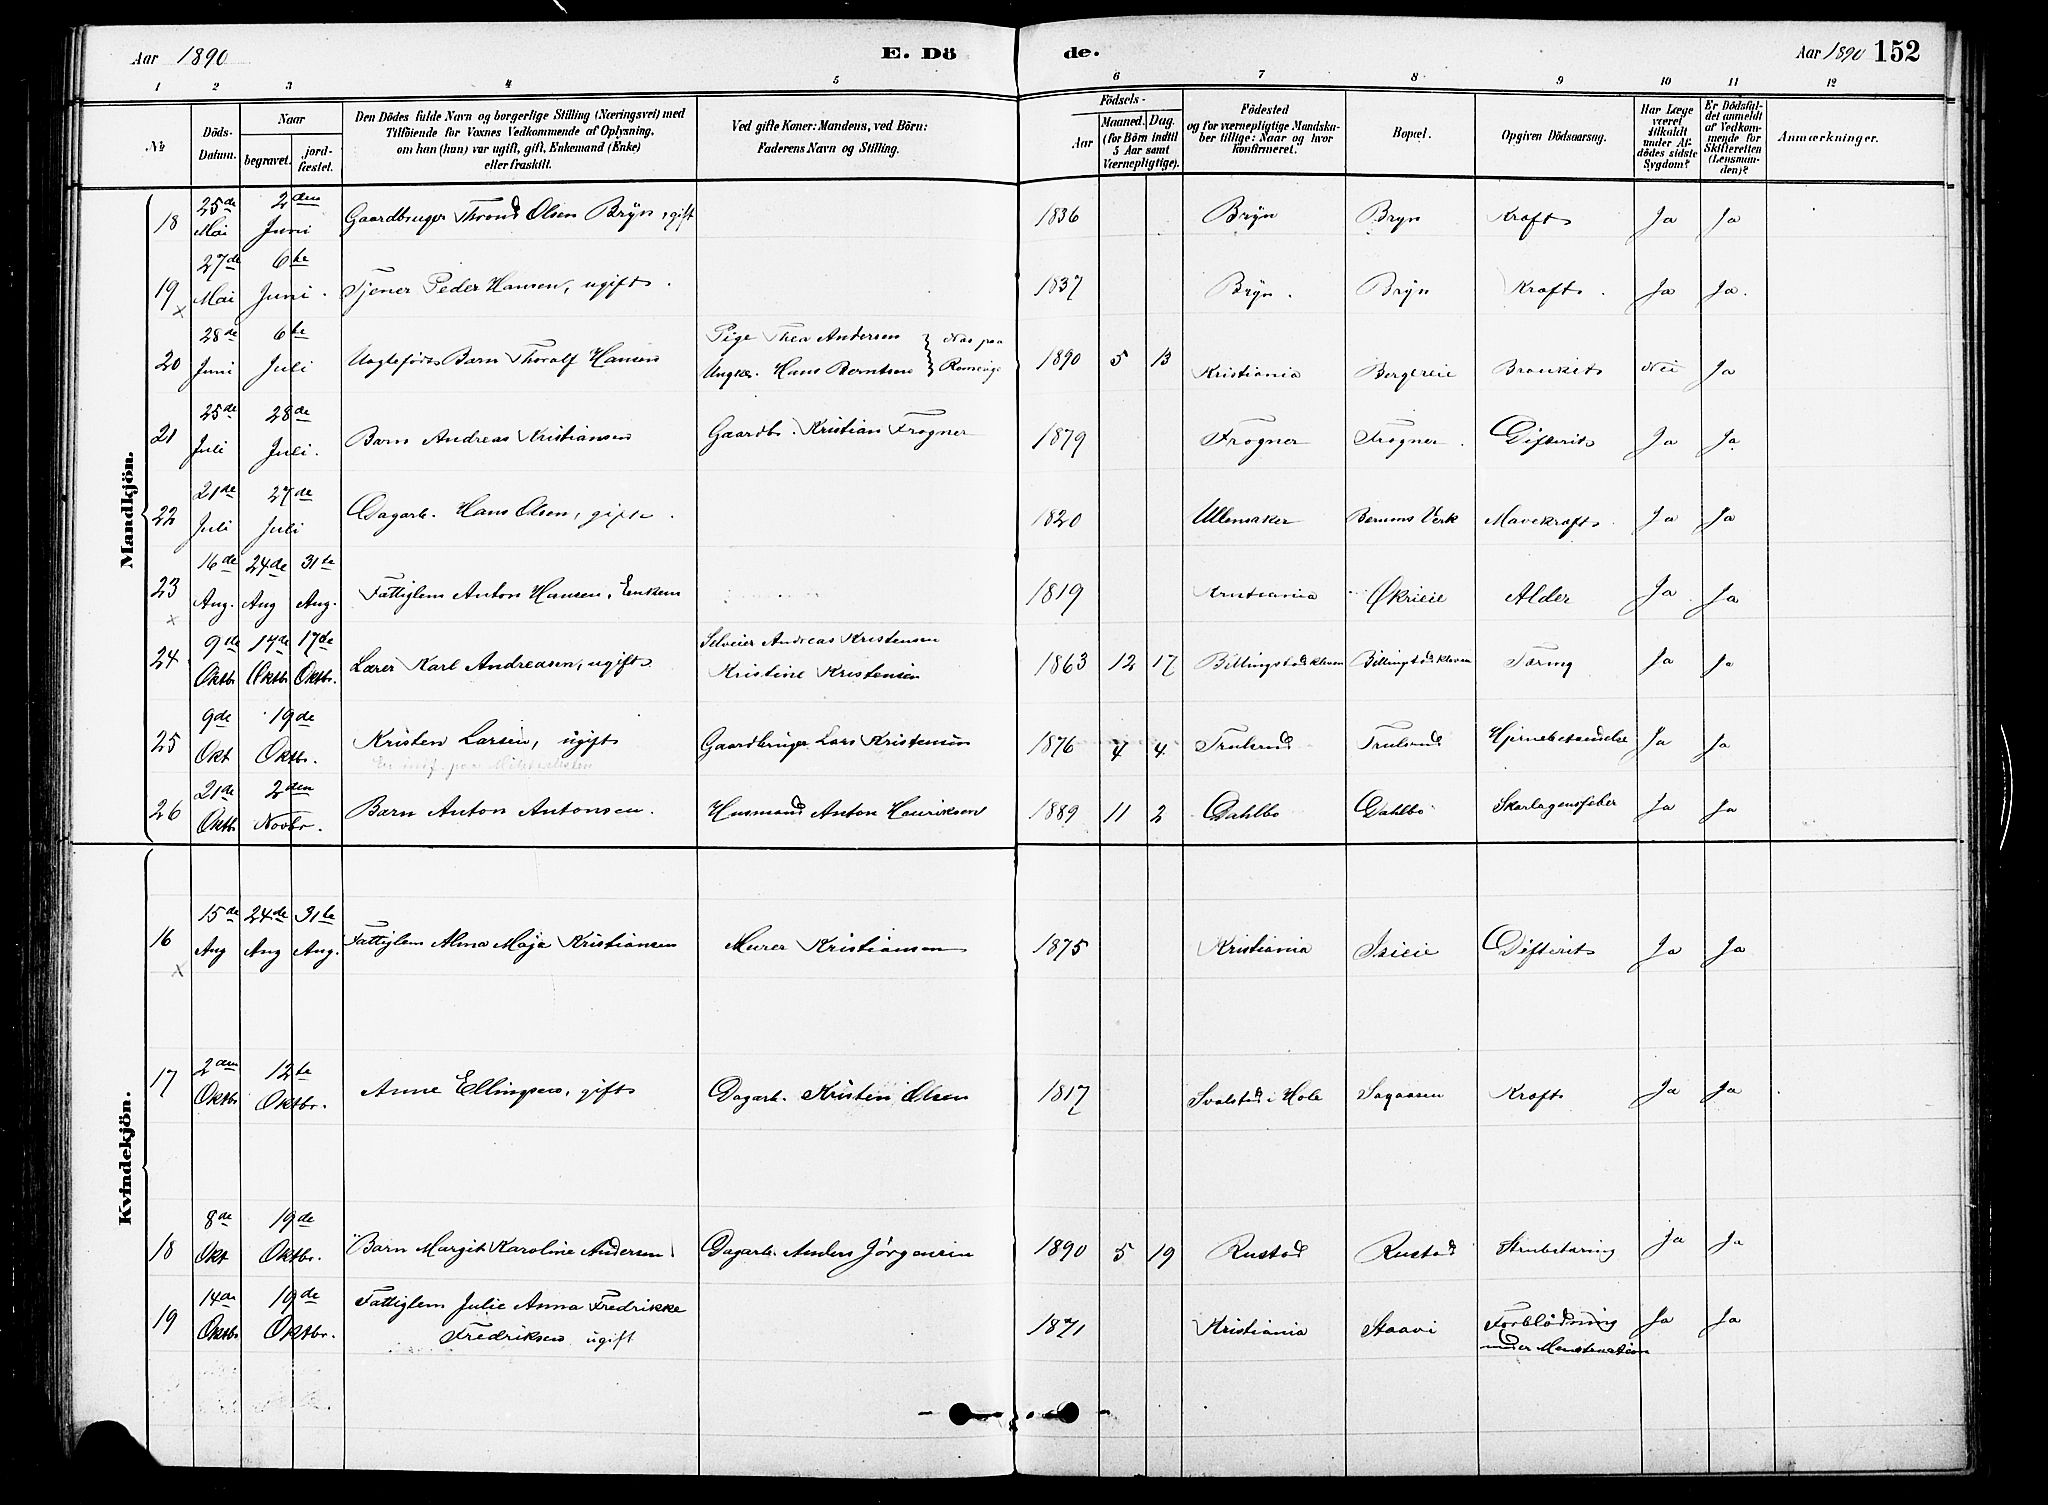 Aar 1890
E. Dö
de.
Aar 1890 152
1 2 3 4 5 6 7 8 9 10 11 12
№
Döds-Datum.
Naar
begravet.
jord-fæstet.
Den Dödes fulde Navn og borgerlige Stilling (Næringsvei) med
Tilföiende for Voxnes Vedkommende af Oplysning,
om han (hun) var ugift, gift, Enkemand (Enke)
eller fraskilt.
Ved gifte Koner: Mandens, ved Börn:
Faderens Navn og Stilling.
Födsels-
Aar
Maaned. Dag.
(for Börn indtil
5 Aar samt
Værnepligtige).
Födested
og for værnepligtige Mandska-
ber tillige: Naar og hvor
konfirmeret.
Bopæl.
Opgiven Dödsaarsag.
Har Læge
været
tilkaldt
under Af-
dödes sidste
Sygdom?
Er Dödsfal-
det anmeldt
af Vedkom-
mende for
Skifteretten
(Lensman-
den)?
Anmærkninger.
Mandkjön.
18 25de Mai 2den Juni Gaardbruger Thrond Olsen Bryn, gift 1836 Bryn Bryn Kraft Ja Ja
19 x 27de Mai 6te Juni. Tjener Peder Hansen, ugift. 1837 Bryn. Bryn Kraft. Ja Ja.
20 28de Juni 6te Juli Uægtefødt Barn Thoralf Hansen Pige Thea Andersen
Ungkar. Hans Berntsen 1890 5 13 Kristiania Bergereie Bronkit Nei Ja
21 25de Juli 28de Juli. Barn Andreas Kristiansen Gaardb. Kristian Frogner 1879 Frogner Frogner. Difterit Ja Ja
22 21de Juli 27de Juli Dagarb. Hans Olsen, gift. 1820 Ullensaker Bærums Verk Mavekraft. Ja Ja
23 x 16de Aug. 24de Aug 31te Aug. Fattiglem Anton Hansen, Enkem 1819 Kristiania Økrieie Alder Ja Ja
24 9de Oktbr 14de Oktbr 17de Oktbr. Lærer Karl Andreasen, ugift. Selveier Andreas Kristensen
Kristine Kristensen 1863 12 17 Billingstadkleven Billingstadkleven Tæring Ja Ja
25 9de Okt 19de Oktbr. Kristen Larsen, ugift Gaardbruger Lars Kristensen 1876 4 4 Trulsrud Trulsrud Hjernebetændelse Ja Ja
26 21de Oktbr 2den Novbr. Barn Anton Antonsen. Husmand Anton Henriksen 1889 11 2 Dahlbo Dahlbo Skarlagensfeber Ja Ja
Kvindekjön.
16 x 15de Aug 24de Aug 31te Aug. Fattiglem Alma Maja Kristiansen Murer Kristiansen 1875 Kristiania Isieie Difterit Ja Ja
17 2den Oktbr 12te Oktbr. Anne Ellingsen, gift Dagarb. Kristen Olsen 1817 Svalstad i Hole Kraft Ja Ja
18 8de Okt 19de Oktbr. Barn Margit Karoline Andersen Dagarb. Anders Jørgensen 1890 5 19 Rustad Rustad Strubetæring Ja Ja
19 14de Oktbr 19de Oktbr. Fattiglem Julie Anna Fredrikke
Fredriksen ugift 1871 Kristiania Staavi Forblødning
under Menstruation Ja Ja